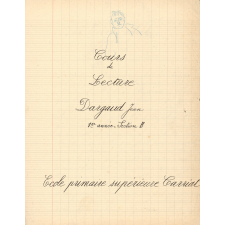 Cours
de
Lecture
Dargaud Jean
1re année, Section B
Ecole primaire supérieure Carriat